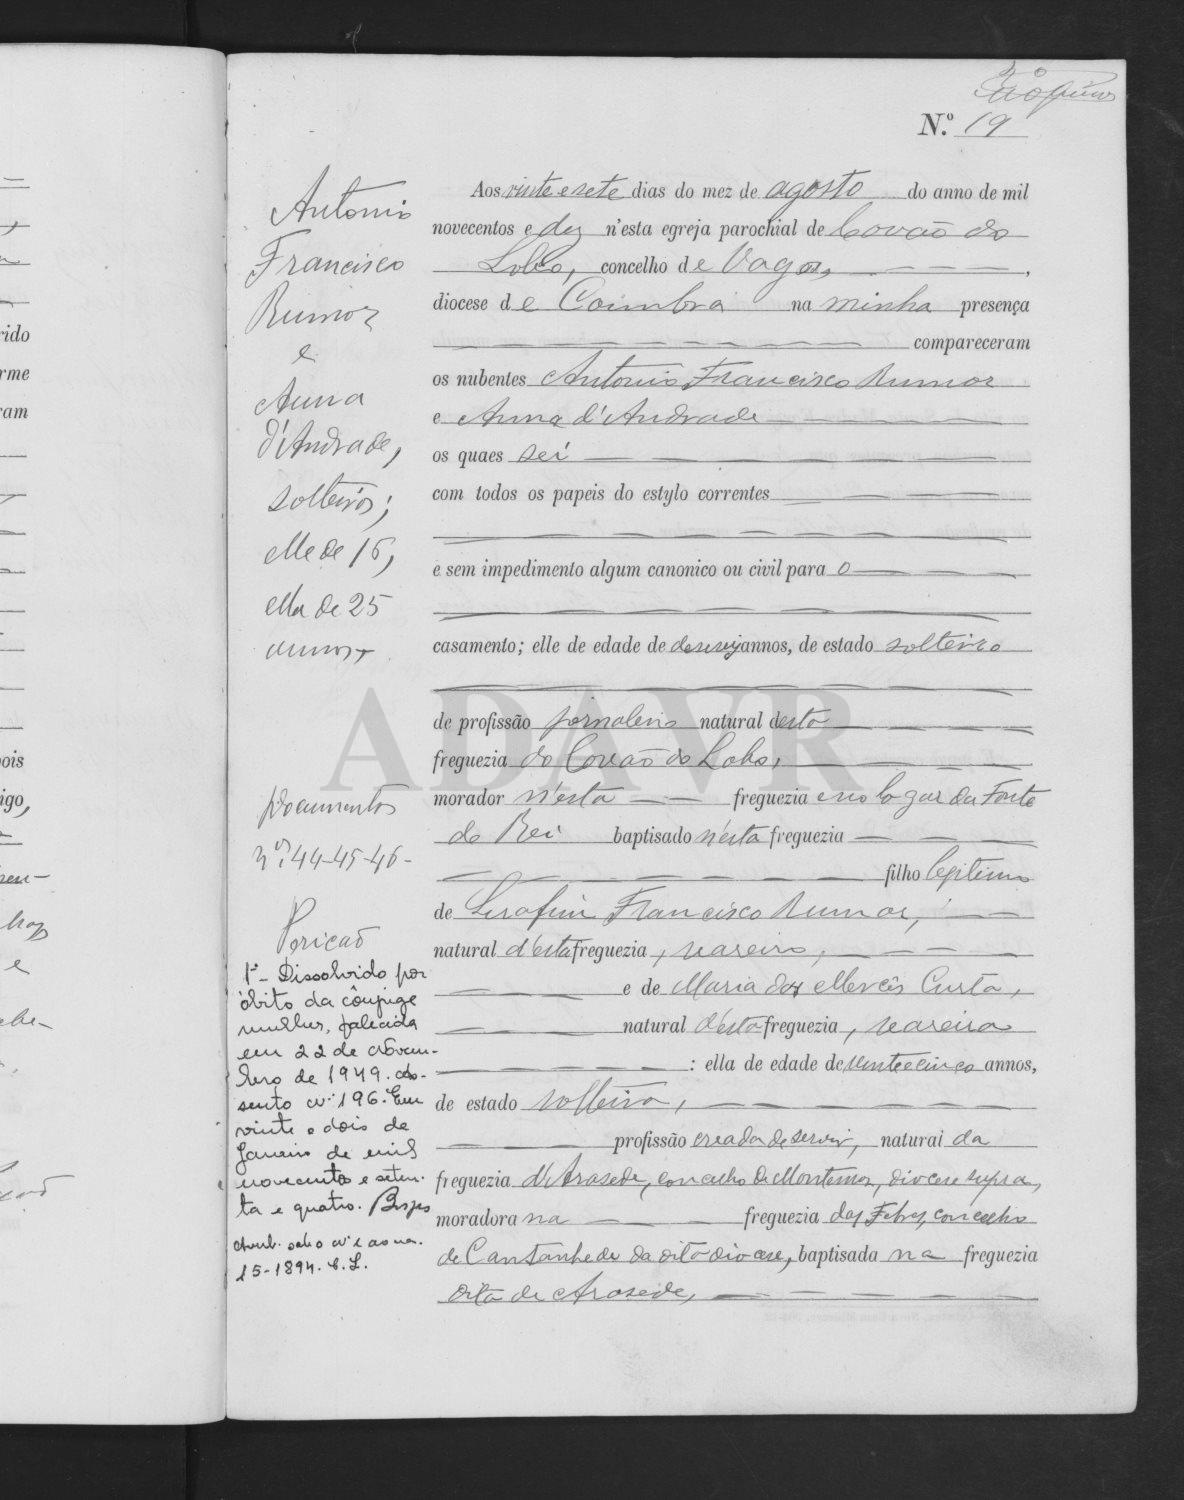 N.º 19
Antonio
Francisco
Rumor
e
Anna
d'Andrade,
solteiros;
elle de 16,
ella de 25
annos
Documentos
n.os 44-45-46-
1º - Dissolvido por
óbito da cônjuge
mulher, falecida
em 22 de Novem-
bro de 1949. As-
sento nº 196. Em
vinte e dois de
Janeiro de mil
novecentos e seten-
ta e quatro.
15-1894.
Aos vinte e sete dias do mez de agosto do anno de mil
novecentos e dez n'esta egreja parochial de Covão do
Lobo, concelho de Vagos,
diocese de Coimbra na minha presença
compareceram
os nubentes Antonio Francisco Rumor
e Anna d'Andrade
os quaes sei
com todos os papeis do estylo correntes
e sem impedimento algum canonico ou civil para o
casamento; elle de edade de deseseis annos, de estado solteiro
de profissão jornaleiro natural desta
freguezia do Covão do Lobo,
morador n'esta freguezia e no logar da Fonte
do Rei baptisado n'esta freguezia
filho legitimo
de Serafim Francisco Rumor,
natural d'esta freguezia, seareiro,
e de Maria das Mercês Curta,
natural d'esta freguezia, seareira
: ella de edade de vinte e cinco annos,
de estado solteira,
profissão creada de servir, natural da
freguezia d'Arasede, concelho de Montemor, diocese supra,
moradora na freguezia das Febres, concelho
de Cantanhede da dita diocese, baptisada na freguezia
dita de Arasede,
ADAVR
rido
rme
ram
ois
igo,